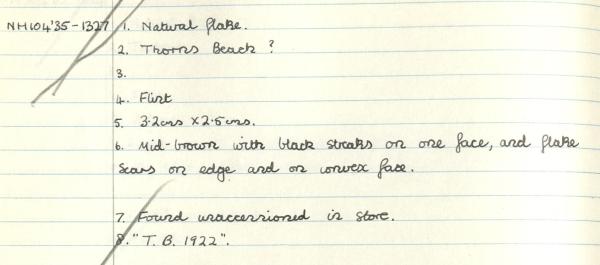 NH104'35-1327 1. Natural flake.
2. Thorns Beach ?
3.
4. Flint
5. 3.2cms x 2.5cms.
6. Mid-brown with black streaks on one face, and flake
scars on edge and on convex face.
7. Found unaccessioned in store.
8. "T. B. 1922".